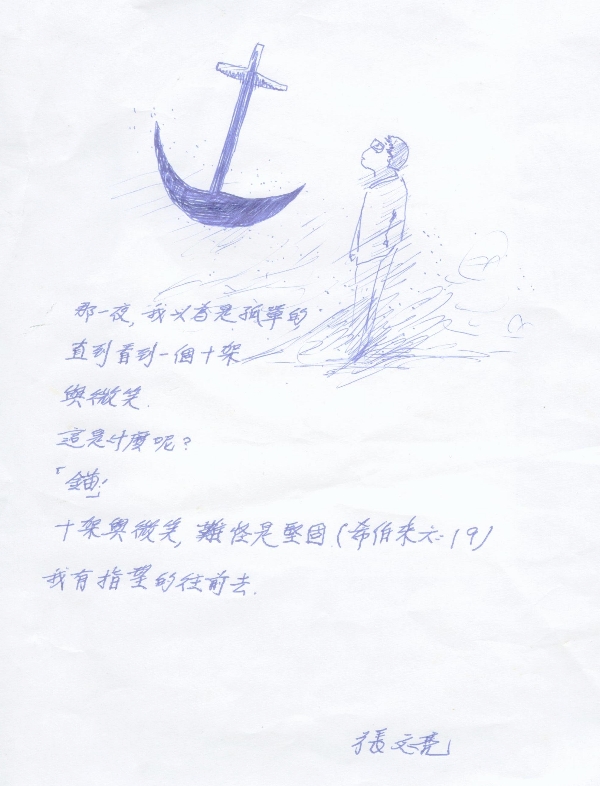 那一夜,我以為是孤單的
直到看到一個十架
與微笑.
這是什麼呢?
「錨!」
十架與微笑,難怪是堅固.(希伯來六:19)
我有指望的往前去.
張文亮